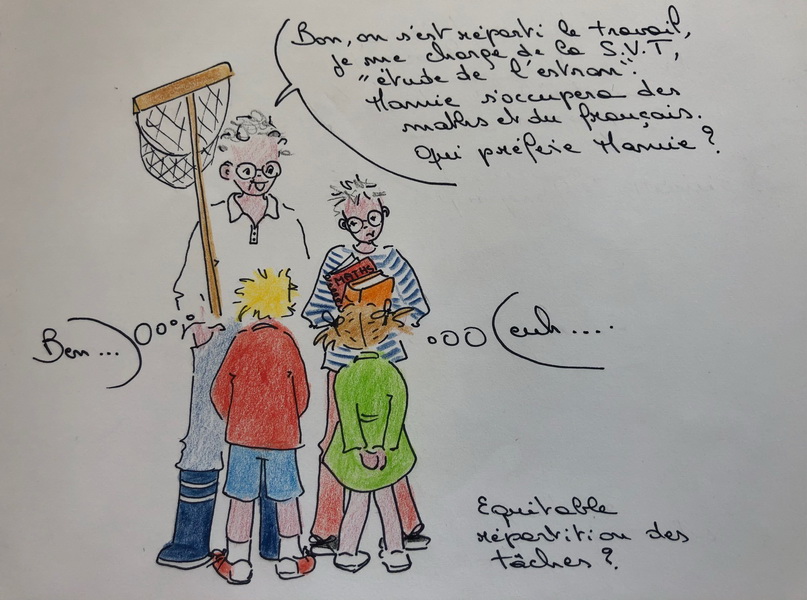 Bon, on s'est réparti le travail,
je me charge de la S.V.T,
"étude de l'estran".
Mamie s'occupera des
maths et du français.
Qui préfère Mamie ?
MATHS
Ben ...
euh ....
Equitable
répartition des
tâches ?